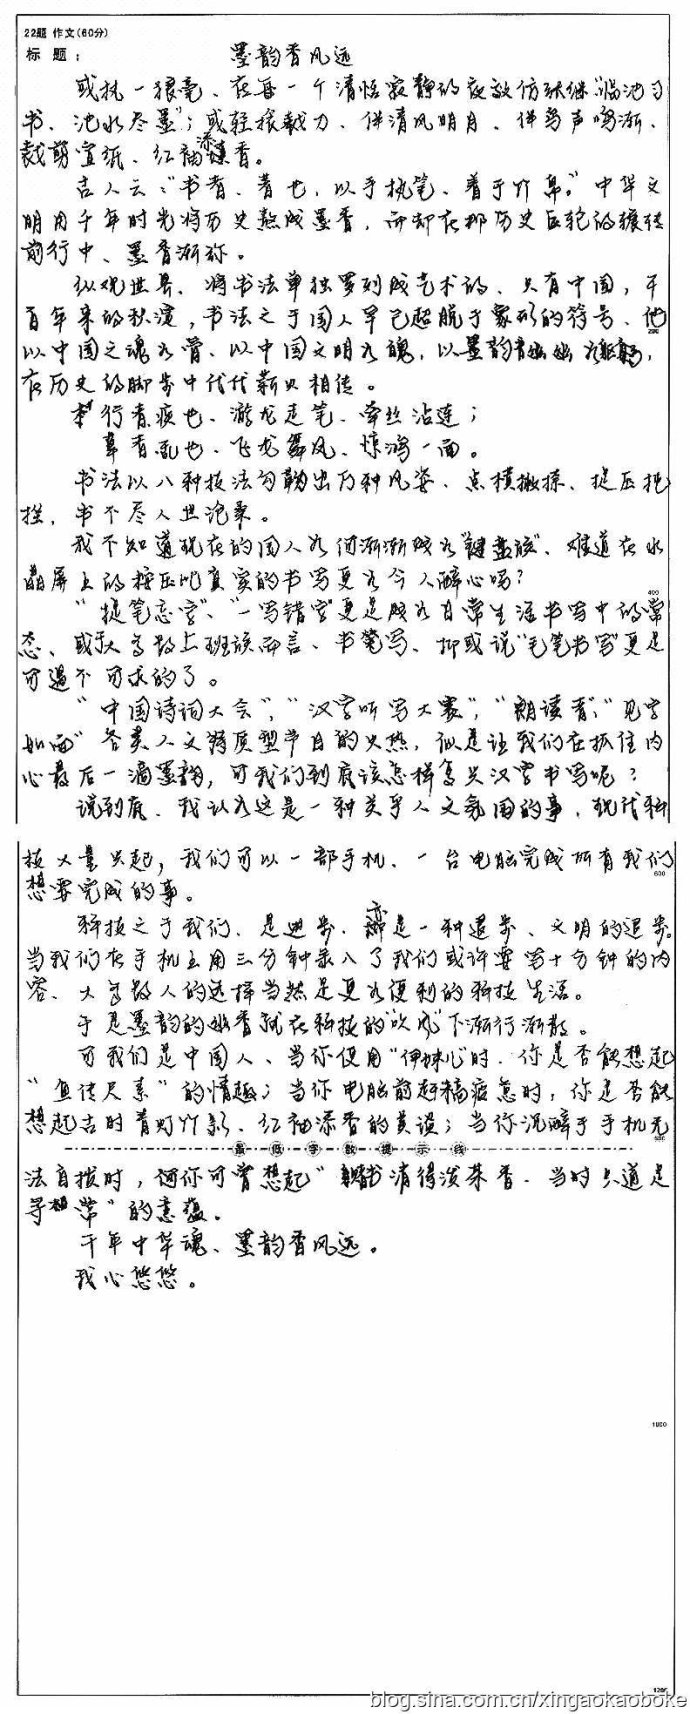 22题 作文(60分)
标 题： 墨韵香风远
或执一狼毫、在每一个清恬寂静的夜放仿张继“临池习
书、池水尽墨”；或轻捻裁刀、伴清风明月、伴鸟声鸣渐、
裁剪宣纸、红袖添香。
古人云：“书者、著也、以手执笔、著于竹帛。”中华文
明用千年时光将历史熬成墨香，而却在那历史巨轮的辗转
前行中、墨香渐弥。
纵观世界、将书法单独罗列成艺术的、只有中国，千
百年来的积淀，书法之于国人早已超脱于象形的符号、他
以中国之魂为骨、以中国文明为魄，以墨韵香幽幽为
在历史的脚步中代代薪火相传。
行者疾也、游龙走笔、牵丝沾连；
草者乱也、飞龙舞凤、惊鸿一面。
书法以八种技法勾勒出万种风姿、点横撇捺、提压
书不尽人世沧桑。
我不知道现在的国人为何渐渐成为“键盘族”、难道在水
晶屏上的按压比真实的书写更为令人醉心吗？
“提笔忘字”、“一写错字”更是成为日常生活书写中的常
态、或于大多数上班族而言、书笔写、抑或说“毛笔书写”更是
可遇不可求的了。
“中国诗词大会”，“汉字听写大赛”，“朗读者”、“见字
如面”各类人文特质型节目的火热，似是让我们在抓住内
心最后一滴墨韵，可我们到底该怎样复兴汉字书写呢？
说到底、我认为这是一种关乎人文氛围的事，现代科
技大量兴起，我们可以一部手机、一台电脑完成所有我们
想要完成的事。
科技之于我们、是进步、亦是一种退步、文明的退步。
当我们在手机上用三分钟录入了我们或许要写十分钟的内
容、大多数人的选择当然是更为便利的科技生活。
于是墨韵的幽香就在科技的“吹风”下渐行渐散。
可我们是中国人、当你使用“伊妹儿”时、你是否能想起
“鱼传尺素”的情趣；当你电脑前赶稿疲怠时，你是否能
想起古时青灯竹影、红袖添香的美谈；当你沉醉于手机无
最 低 字 数 提 示 线
法自拔时，何你可曾想起“赌书消得泼茶香、当时只道是
寻常”的意蕴。
千年中华魂、墨韵香风远。
我心悠悠。
200
400
600
800
1000
1200
blog.sina.com.cn/xingaokaoboke